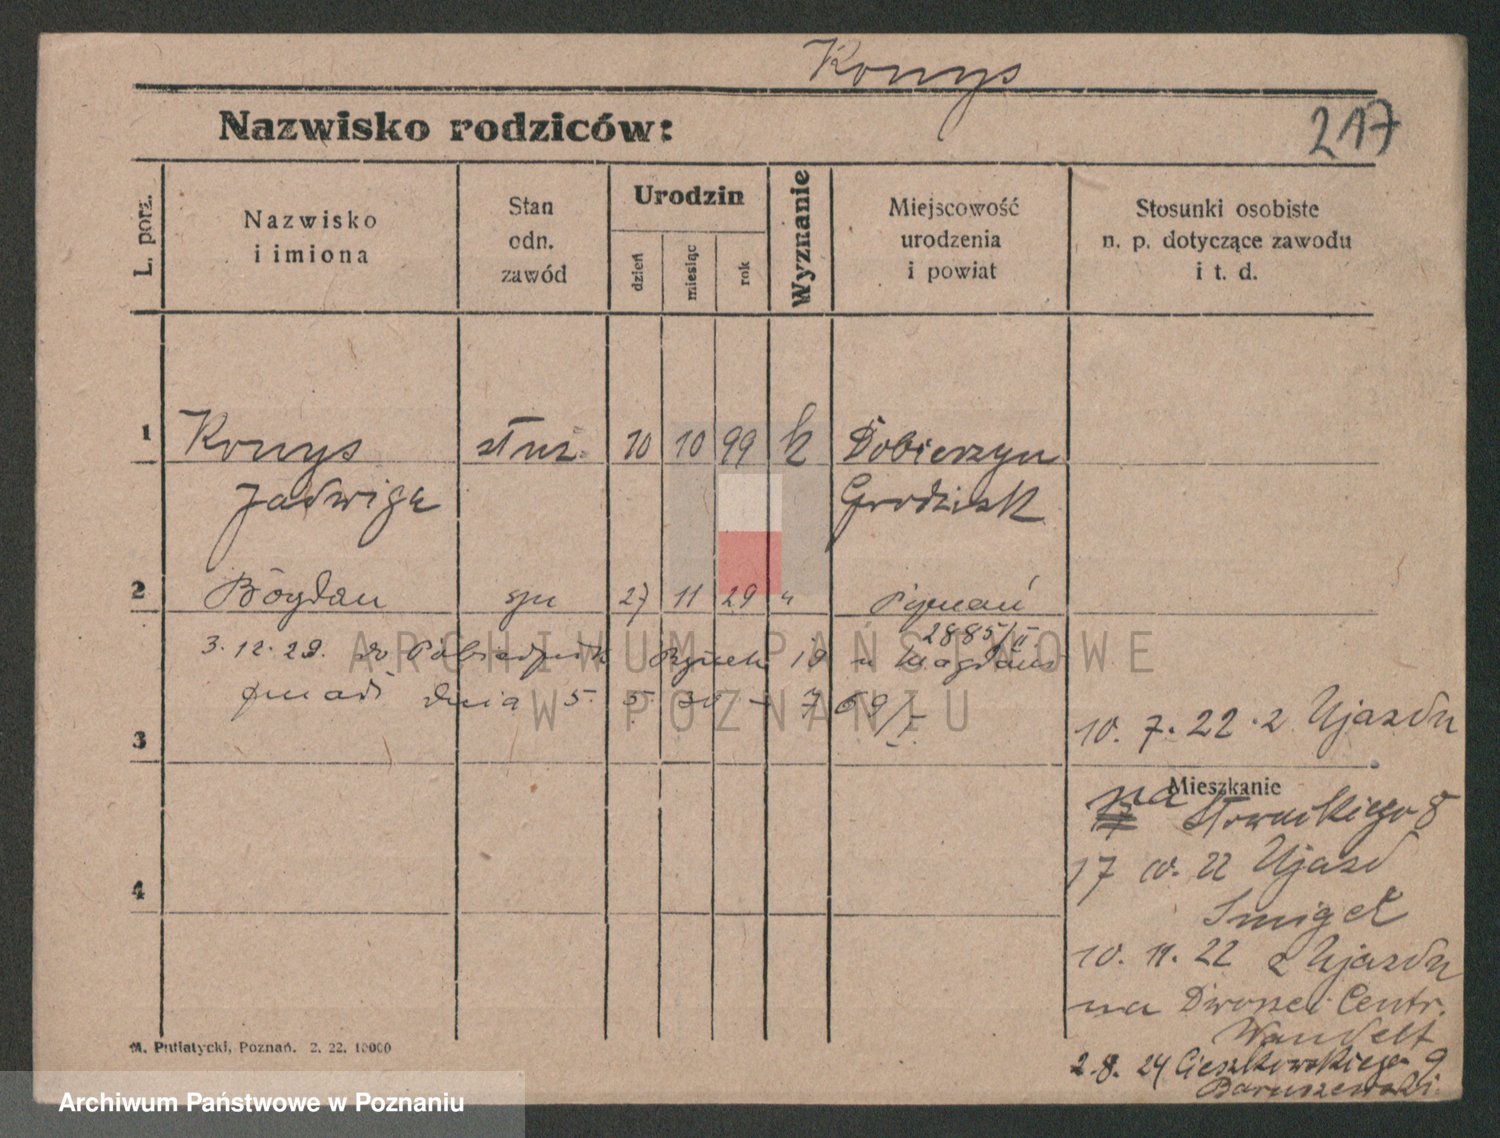 Konys
Nazwisko rodziców:
217
L. porz.
Nazwisko
i imiona
Stan
odn.
zawód
Urodzin
dzień
miesiąc
rok
Wyznanie
Miejscowość
urodzenia
i powiat
Stosunki osobiste
n. p. dotyczące zawodu
i t. d.
1 Konys służ. 10 10 99 k Dobieszyn
Jadwiga Grodzisk
2 Bogdan syn 27 11 29 " Poznań
2885/II
3.12.29. do Pobiedzisk Rynek 19 u
dnia 5. 5. 30 - 769/I
3
10. 7. 22 z Ujazdu
Mieszkanie
na Słowackiego 8
17 10. 22 Ujazd
Śmigel
10. 11. 22 z Ujazdu
na Dworzec Centr.
Wandelt
2.8. 24 Cieszkowskiego 9
Baruszewski
4
M. Putiatycki, Poznań. 2. 22. 10000
ARCHIWUM PAŃSTWOWE
W POZNANIU
Archiwum Państwowe w Poznaniu